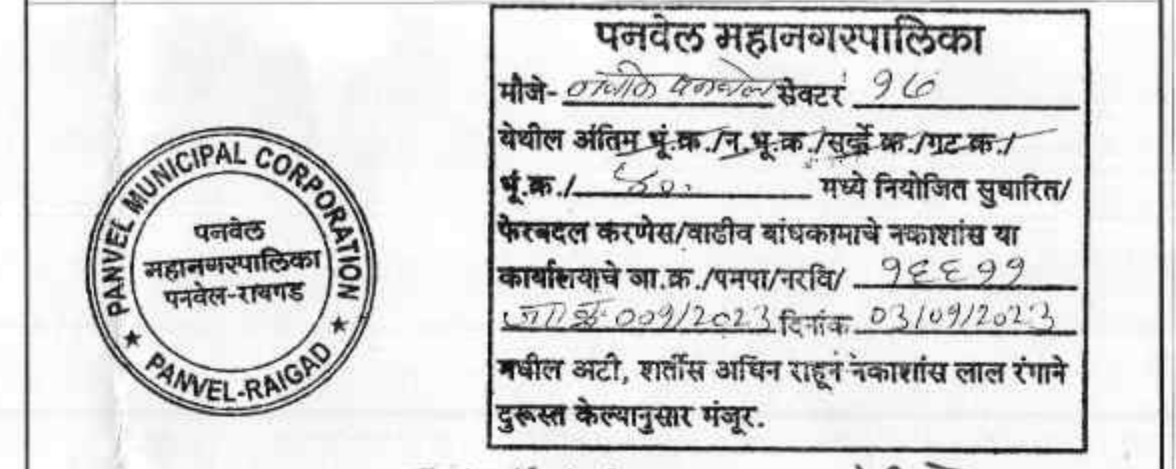 PANVEL MUNICIPAL CORPORATION
पनवेल
महानगरपालिका
पनवेल-रायगड
★ PANVEL-RAIGAD ★
पनवेल महानगरपालिका
मौजे- पनवेल सेक्टर १७
येथील अंतिम भूं.क्र./न.भू.क्र./सर्व्हे क्र./गट क्र./
भूं.क्र./ मध्ये नियोजित सुधारित/
फेरबदल करणेस/वाढीव बांधकामाचे नकाशांस या
कार्यालयाचे जा.क्र./पमपा/नरवि/ १६६११
जा.क्र. 001/2023 दिनांक 03/01/2023
मधील अटी, शर्तीस अधिन राहून नकाशांस लाल रंगाने
दुरूस्त केल्यानुसार मंजूर.